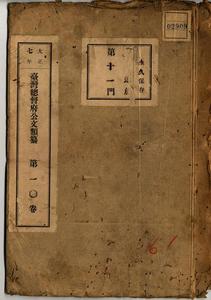 02909
永久保存
第十一門
大正
七年
臺灣總督府公文類纂
第一〇卷
61